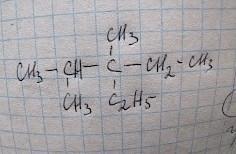 CH3
CH3-CH-C-CH2-CH3
CH3 C2H5